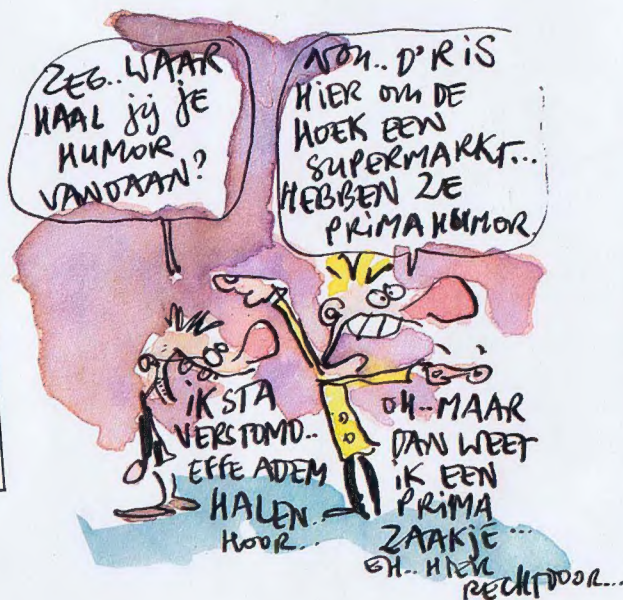 ZEG..WAAR
HAAL jij je
HUMOR
VANDAAN?
NOU.. D'R iS
HiER OM DE
HOEK EEN
SUPERMARKT...
HEBBEN ZE
PRiMA HUMOR.
iK STA
VERSTOMD..
EFFE ADEM
HALEN..
HOOR..
OH..MAAR
DAN WEET
iK EEN
PRiMA
ZAAKJE...
EH.. HiER
RECHTDOOR...